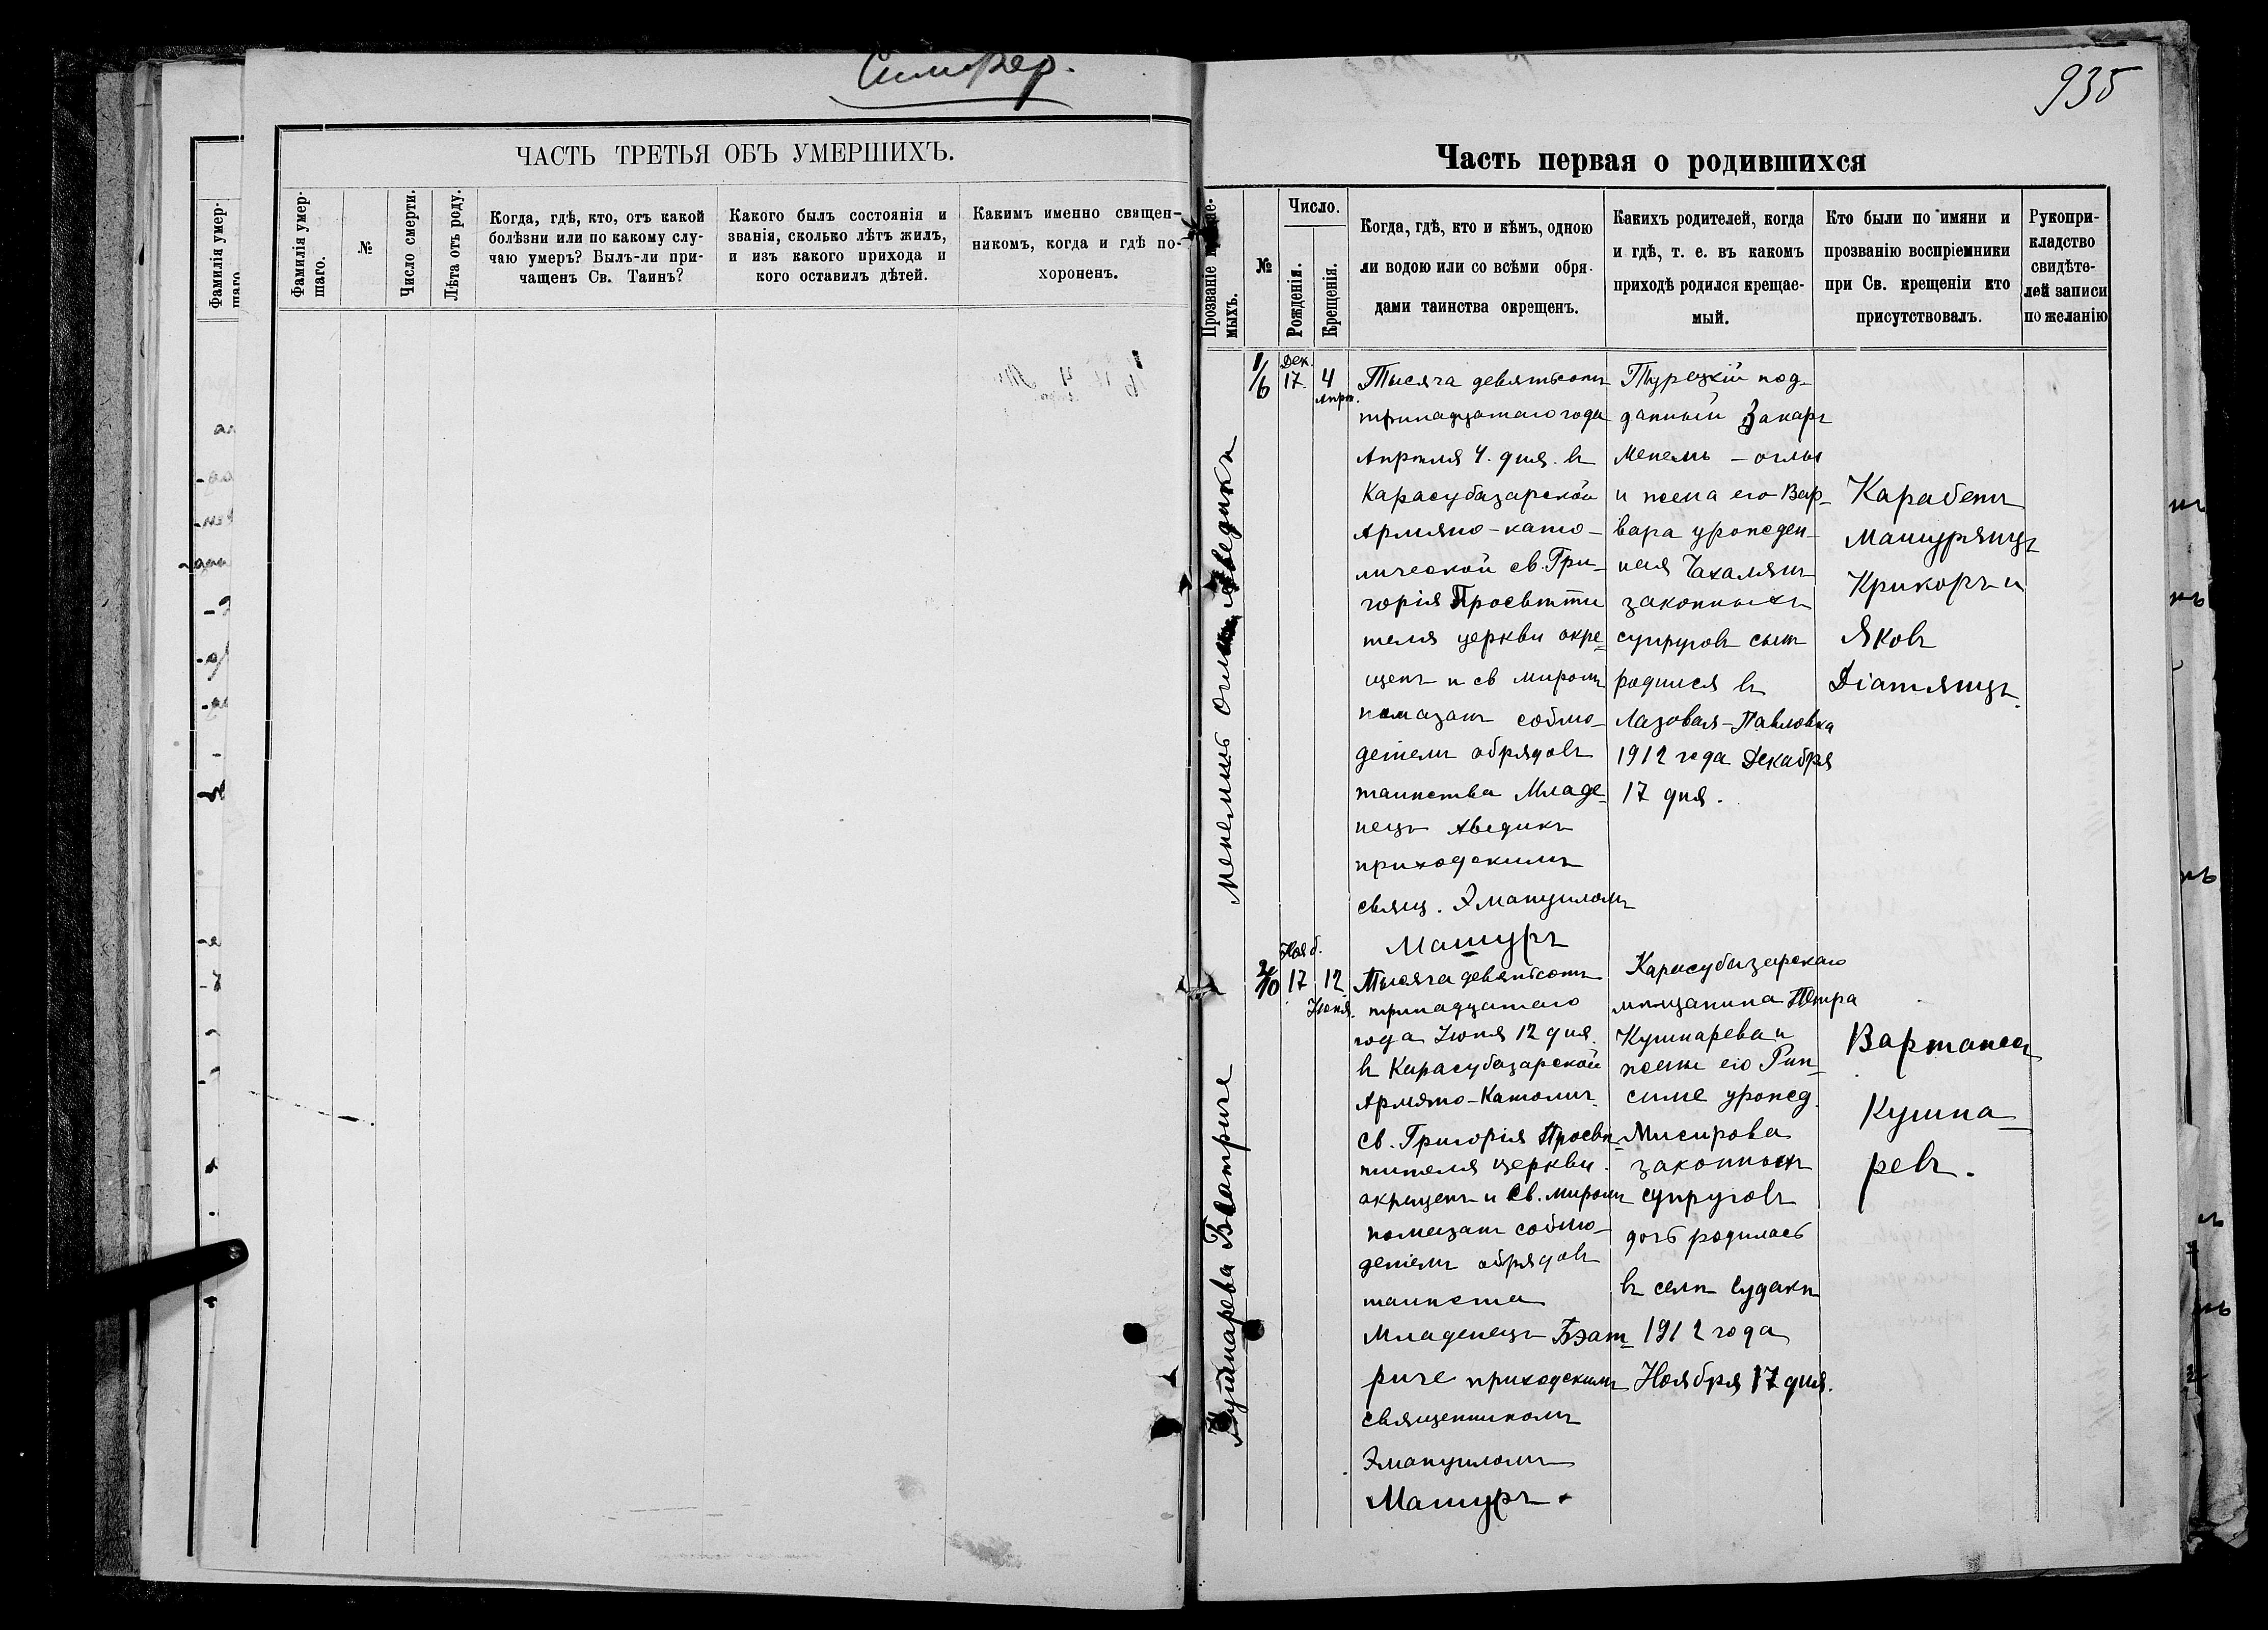 Симфер.
ЧАСТЬ ТРЕТЬЯ ОБЪ УМЕРШИХЪ.
Фамилія умер-
шаго.
Фамилія умер-
шаго.
№
Число смерти.
Лѣта отъ роду.
Когда, гдѣ, кто, отъ какой
болѣзни или по какому слу-
чаю умеръ? Былъ-ли при-
чащенъ Св. Таинъ?
Какого былъ состоянія и
званія, сколько лѣтъ жилъ,
и изъ какого прихода и
кого оставилъ дѣтей.
Какимъ именно священ-
никомъ, когда и гдѣ по-
хороненъ.
935
Часть первая о родившихся
Прозваніе
мыхъ.
№
Число.
Рожденія.
Крещенія.
Когда, гдѣ, кто и кѣмъ, одною
ли водою или со всѣми обря-
дами таинства окрещенъ.
Какихъ родителей, когда
и гдѣ, т. е. въ какомъ
приходѣ родился крещае-
мый.
Кто были по имяни и
прозванію воспріемники
при Св. крещеніи кто
присутствовалъ.
Рукопри-
кладство
свидѣте-
лей записи
по желанію
Аведикъ
1/6
Дек.
17
4
Апрѣ.
Тысяча девятьсотъ
тринадцатаго года
Апрѣля 4. дня. въ
Карасубазарской
Армяно-като-
лической св. Гри-
горія Просвѣти
теля церкви окре-
щенъ и св миромъ
помазанъ соблю-
деніемъ обрядовъ
таинства Младе-
нецъ Аведикъ
приходскимъ
свящ. Эмануиломъ
Машуръ
Турецкій под-
данный Захаръ
оглы
и жена его Вар-
вара урожден-
ная Чахалянъ
законныхъ
супруговъ сынъ
родился въ
Лазовая-Павловка
1912 года Декабря
17 дня.
Карабетъ
Машурянцъ
Крикоръ и
Яковъ
Діатянцъ.
Кушнарева Беатриче
2/10
Нояб.
17
12
Іюня.
Тысяча девятьсотъ
тринадцатаго
года Іюня 12 дня.
въ Карасубазарской
Армяно-Католич.
Св. Григорія Просвѣ-
тителя церкви.
окрещенъ и Св. миромъ
помазанъ соблю-
деніемъ обрядовъ
таинства
Младенецъ Бэат-
риче приходскимъ
священникомъ
Эмануиломъ
Машуръ.
Карасубазарскаго
мѣщанина Петра
Кушнарева и
жены его Рип-
симе урожд.
Мисирова
законныхъ
супруговъ
дочь родилась
въ селѣ Судакѣ
1912 года
Ноября 17 дня.
Вартанесъ
Кушна-
ревъ.